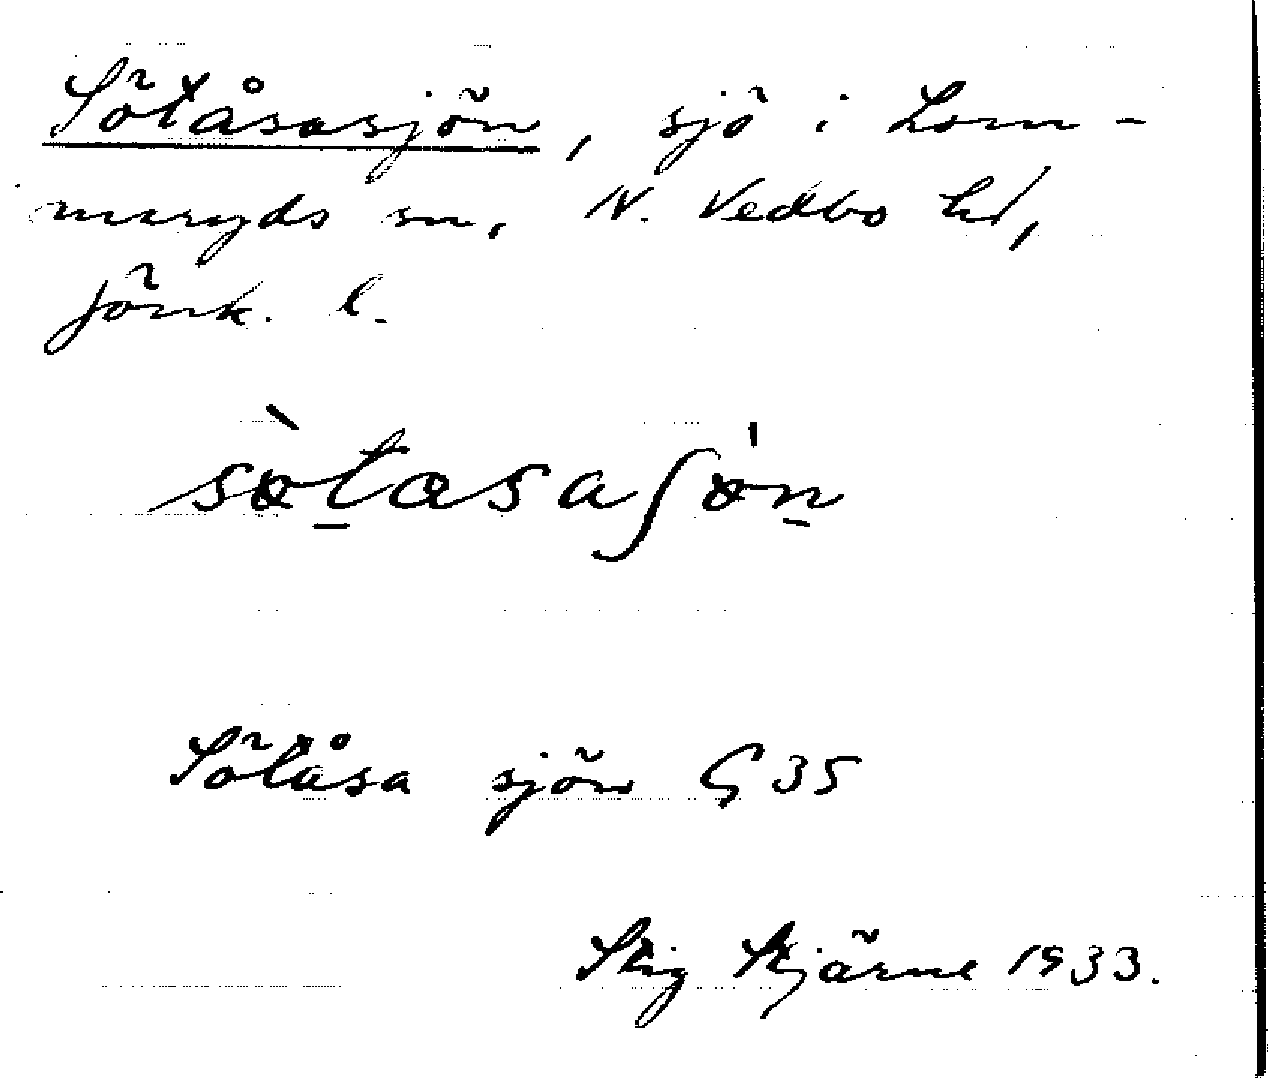 Sötåsasjön, sjö i Lom-
maryds sn, N. Vedbo hd,
Jönk. l.
Sötåsa sjön G 35
Stig Stjärne 1933.